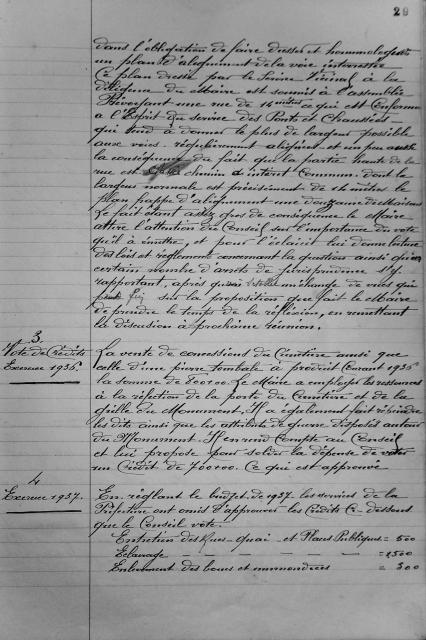 29
dans l'obligation de faire dresser et homologuer
un plan d'alignement de la voie intéressée
Ce plan dressé par le Service Vicinal à la
diligence du Maire est soumis à l'assemblée
Prévoyant une rue de 14 mètres ce qui est conforme
a l'Esprit du service des Ponts et Chaussées
qui tend à donner le plus de largeur possible
aux voies régulièrement alignées et un peu
la conséquence du fait que la partie haute de la
rue est chemin d'intérêt Commun dont la
largeur normale est précisément de 14 mètres le
Plan frappe d'alignement une douzaine de Maisons
Le fait étant assez gros de conséquence le Maire
attire l'attention du Conseil sur l'importance du vote
qu'il à émettre, et pour l'éclaircir lui donne lecture
des lois et règlements concernant la question ainsi qu'un
certain nombre d'arrêts de jurisprudence s'y
rapportant, après quoi échange de vues qui
prend fin sur la proposition que fait le Maire
de prendre le temps de la réflexion, en remettant
la discussion à prochaine réunion.
3
Vote de Crédits
Exercice 1936
La vente de concessions du Cimetière ainsi que
celle d'une pierre tombale à produit Courant 1936
la somme de Le Maire a employé les ressources
à la réfection de la porte du Cimetière et de la
grille du Monument. Il a également fait repeindre
les dits ainsi que les attributs de guerre disposés autour
du Monument. Il en rend Compte au Conseil
et lui propose pour solder la dépense de voter
un Crédit de 700f00. Ce qui est approuvé
4
Exercice 1937.
En réglant le budget de 1937 les services de la
Préfecture ont omis d'approuver les Crédits Ci-dessous
que le Conseil vote.
Entretien des Rues - quai - et Places Publiques = 500
Eclairage = 1500
Enlèvement des boues et immondices = 300